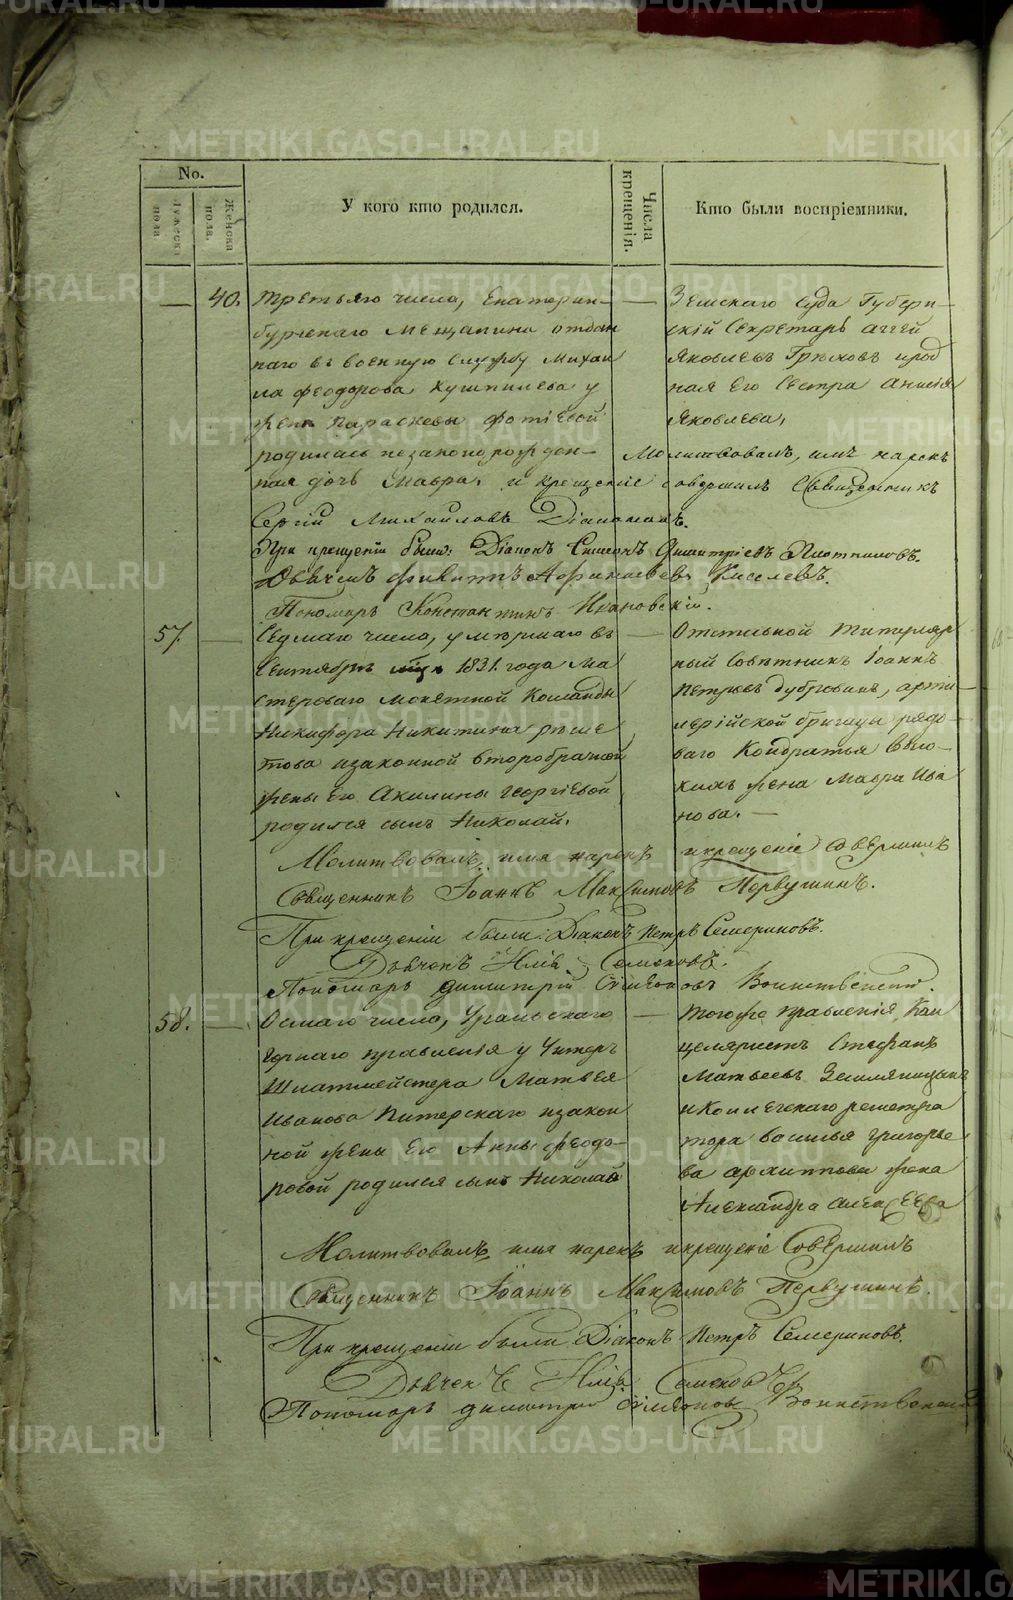 No.
Мужеска пола
Женска пола.
У кого кто родился.
Числа крещенія.
Кто были воспріемники.
40. третьяго числа, Екатерин-
бургскаго мещанина отдан
наго въ военную службу Михаи
ла феодорова Кушпилева у
жены парасковы фотіевой
родилась незаконорожден-
ная дочь Мавра.
Земскаго Суда Губерн-
скій Секретарь Аггей
Яковлевъ Грѣховъ и род
ная Его Сестра Анисія
Яковлева,
Молитвовалъ, имя нарекъ
и крещеніе совершилъ Священникъ
Сергій Михайловъ Діапомаковъ.
При крещеніи были: Діаконъ Симеонъ Димитріевъ Плотниковъ.
Дьячекъ Филиппъ Афанасьевъ Киселевъ.
Пономарь Константинъ Ивановскій.
57. Седмаго числа, умершаго въ
Сентябрѣ мцѣ 1831. года Ма
стероваго монетной Команды
Никифора Никитина рѣше
това и законной второбрачной
жены Его Акилины Георгіевой
родился сынъ Николай.
Отставной Титуляр
ный Совѣтникъ Іоаннъ
Петровъ дубровинъ, арти
лерійской бригады рядо-
ваго Кондратья
жена Мавра Ива
нова. —
Молитвовалъ, имя нарекъ и крещеніе совершилъ
Священникъ Іоаннъ Максимовъ Первушинъ.
При крещеніи были: Діаконъ Петръ Семериковъ.
Дьячекъ Илія Семеновъ.
Пономарь Димитрій Симеоновъ Воинственскій.
58. Осмаго числа, Уральскаго
Горнаго правленія у Унтеръ
Шихтмейстера Матвея
Иванова Питерскаго и закон
ной жены Его Анны феодо-
ровой родился сынъ Николай
тогоже правленія Кан
целяристъ Стефанъ
Матвеевъ Земляницынъ
и Коллегскаго регистра
тора василья григорье
ва архиппова жена
Александра алексеева
Молитвовалъ, имя нарекъ и крещеніе Совершилъ
Священникъ Іоаннъ Максимовъ Первушинъ.
При крещеніи были Діаконъ Петръ Семериковъ.
Дьячекъ Илія Семеновъ
Пономарь димитрій Симеоновъ Воинственскій
METRIKI.GASO-URAL.RU